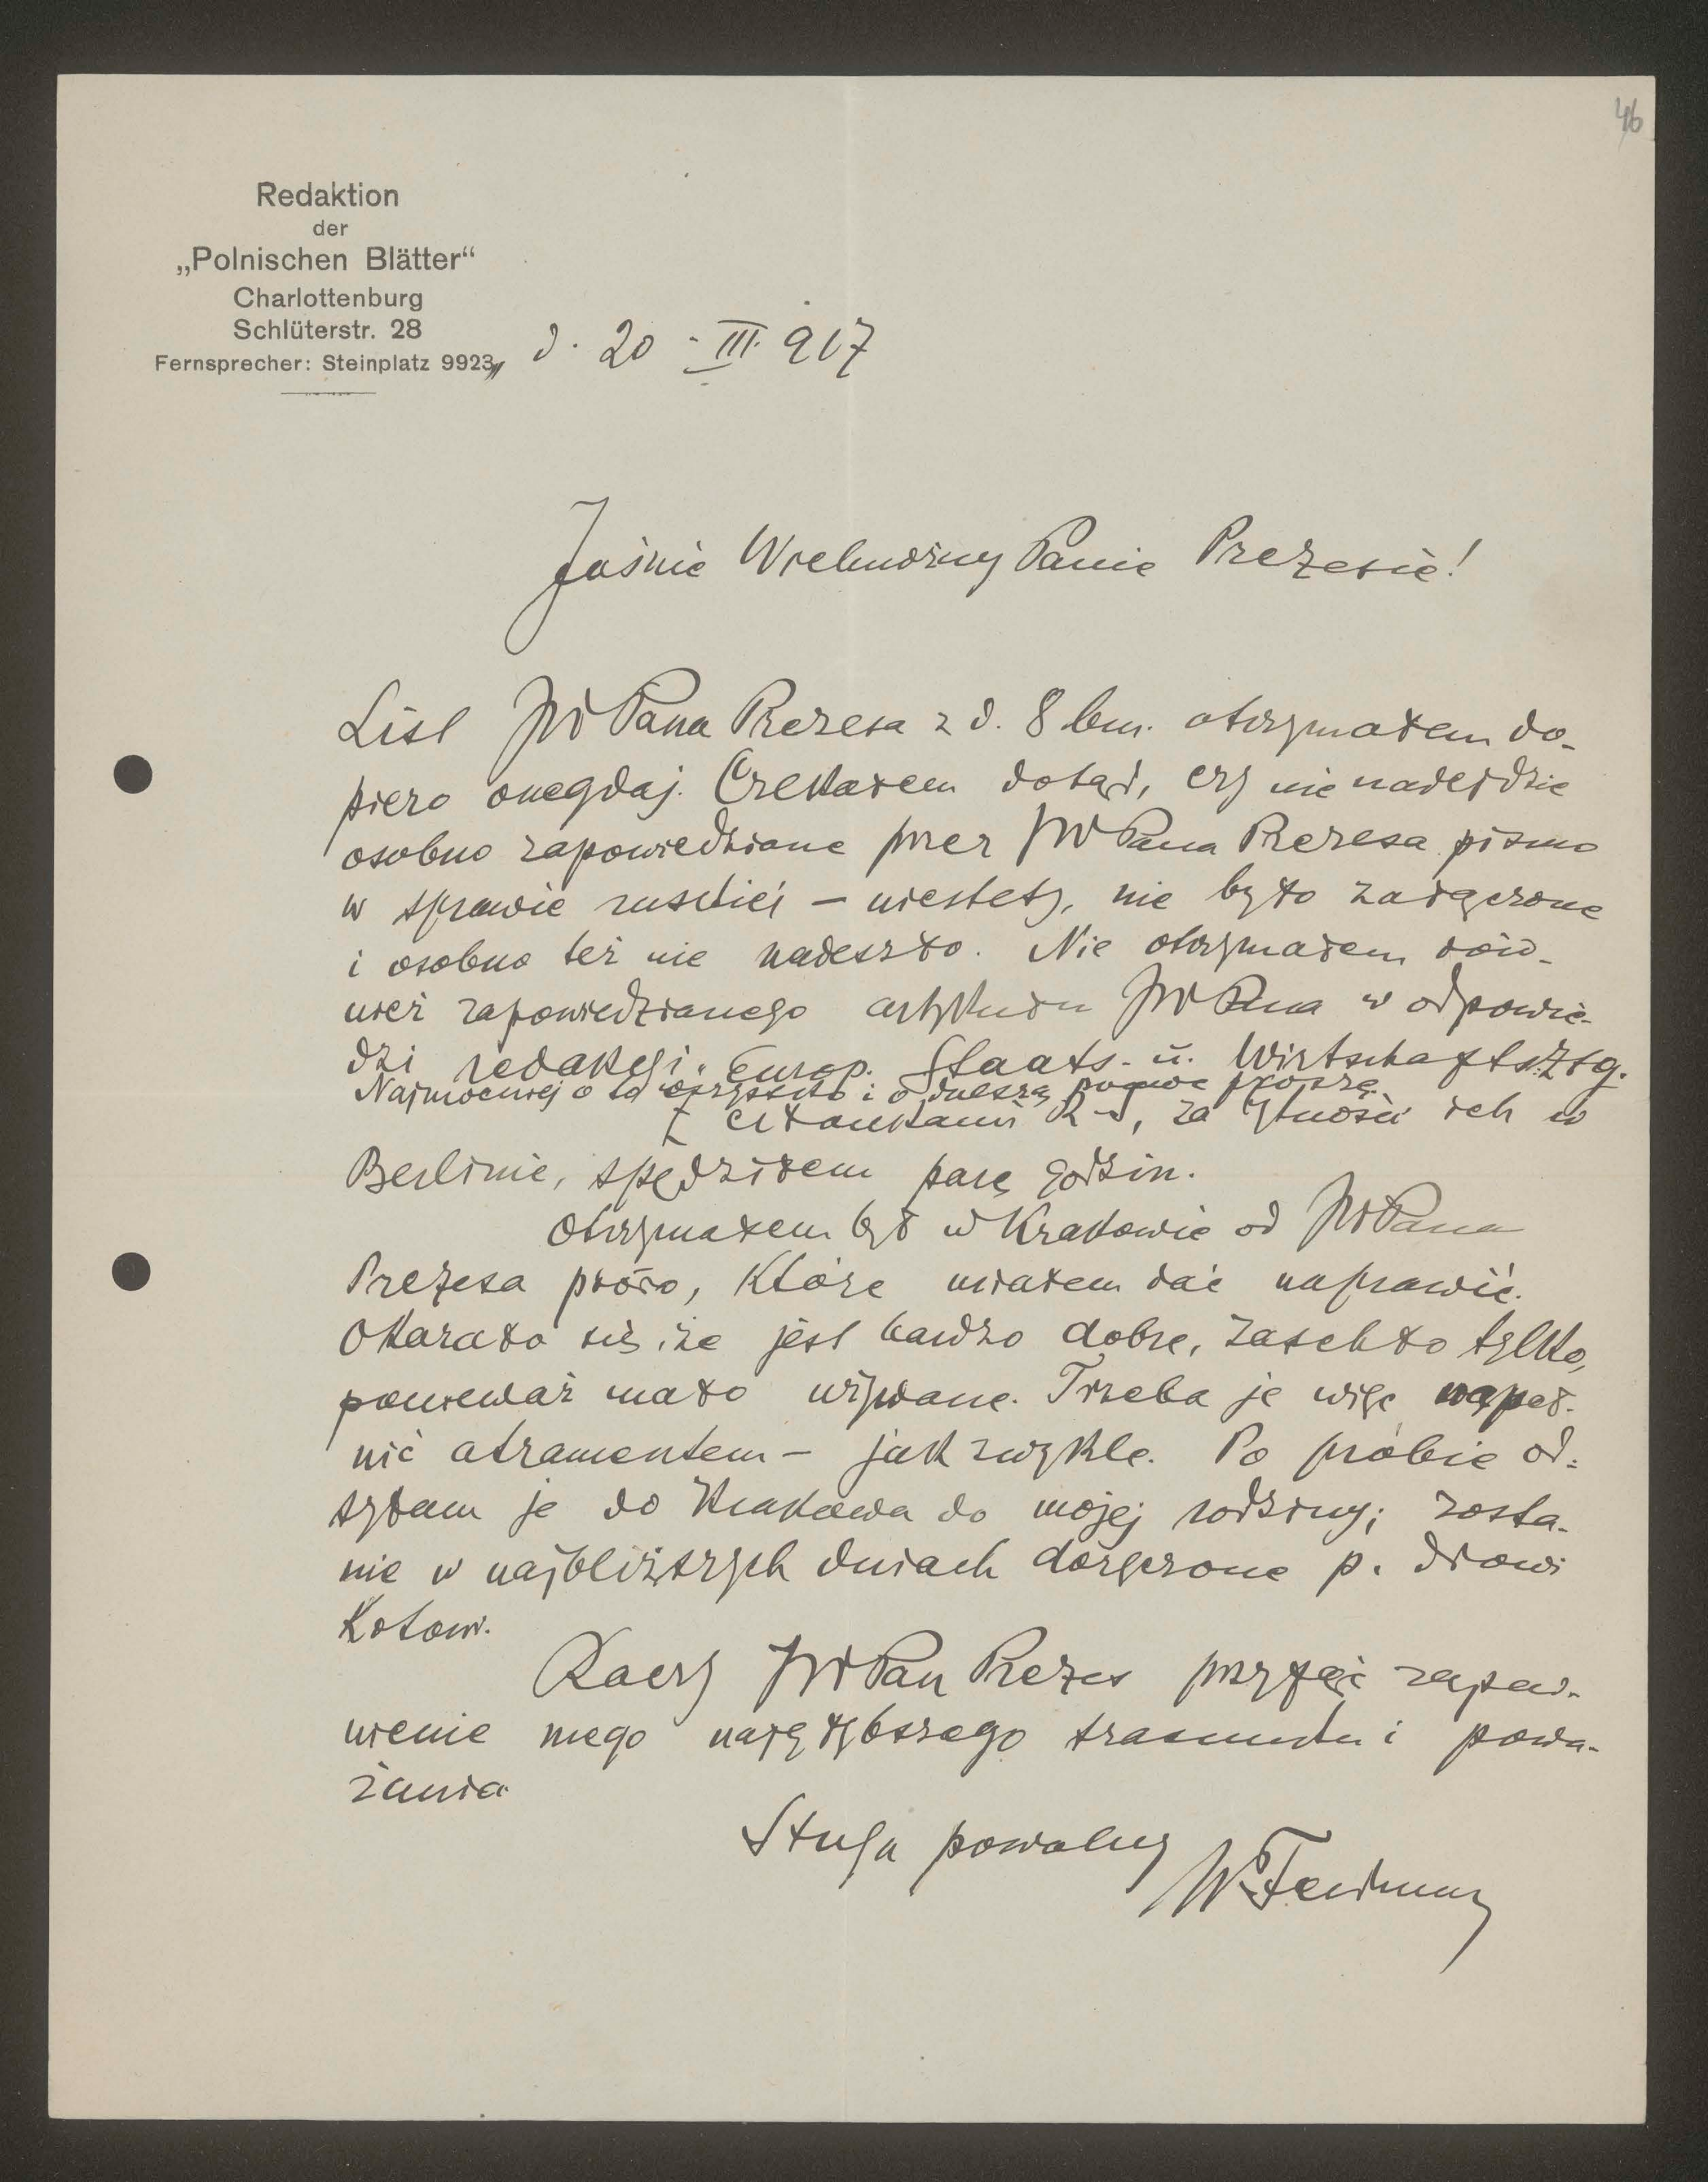 46
Redaktion
der
„Polnischen Blätter“
Charlottenburg
Schlüterstr. 28
Fernsprecher: Steinplatz 9923,, d. 20. III. 917
Jaśnie Wielmożny Panie Prezesie!
List JWPana Prezesa z d. 8 bm. otrzymałem do-
piero onegdaj. Czekałem dotąd, czy nie nadejdzie
osobno zapowiedziane przez JWPana Prezesa pismo
w sprawie ruskiej – niestety, nie było załączone
i osobno też nie nadeszło. Nie otrzymałem rów-
nież zapowiedzianego artykułu JWPana w odpowie-
dzi redakcji „Europ. Staats- u. Wirtschaftsztg.
Najmocniej o to wszystko i o dalszą pomoc proszę.
Z członkami R–S, za bytności ich w
Berlinie, spędziłem parę godzin.
Otrzymałem był w Krakowie od JWPana
Prezesa pióro, które miałem dać naprawić.
Okazało się, że jest bardzo dobre, zaschło tylko,
ponieważ mało używane. Trzeba je więc napeł-
nić atramentem – jak zwykle. Po próbie od-
syłam je do Krakowa do mojej rodziny; zosta-
nie w najbliższych dniach doręczone p. drowi
Kotowi.
Raczy JWPan Prezes przyjąć zapew-
nienie mego najgłębszego szacunku i powa-
żania
Sługa powolny
WFeldman